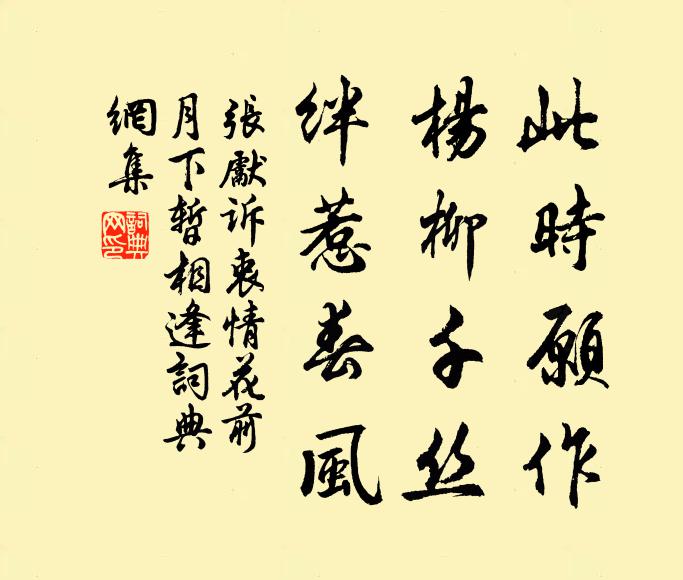 此時願作
楊柳千丝
絆惹春風
張獻訴衷情花前
月下暫相逢詞典
網集
詞典網印